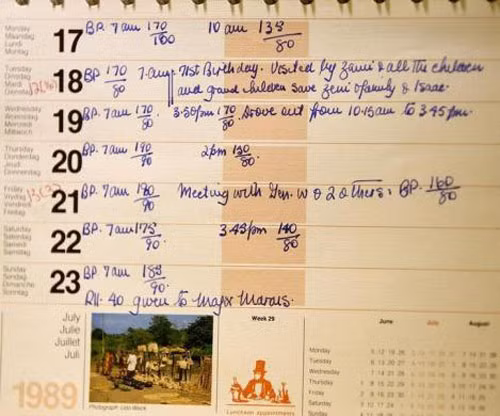 Monday
Maandag
Lundi
Montag
17 BP. 7am 170/100 10 am 138/80
Tuesday
Dinsdag
Mardi
Dienstag
18 BP 170/80 7.am 71st Birthday. Visited by Zeni & all the children
and grand children save Zeni's family &
Wednesday
Woensdag
Mercredi
Mittwoch
19 BP. 7am 170/80 3.30pm 170/80. Drove out from 10.15am to 3.45pm.
Thursday
Donderdag
Jeudi
Donnerstag
20 BP. 7am 190/90 2pm 130/80.
Friday
Vrydag
Vendredi
Freitag
21 BP. 7am 180/90 Meeting with Gen. W & 2 others: BP. 160/80
Saturday
Saterdag
Samedi
Samstag
22 BP. 7am 175/90 3.45pm 140/80
Sunday
Sondag
Dimanche
Sonntag
23 BP. 7am 185/90
R11.40 given to Major Marais.
July
Julie
Juillet
Juli
1989
Week 29
Luncheon appointments
June July August
Monday
Tuesday
Wednesday
Thursday
Friday
Saturday
Sunday